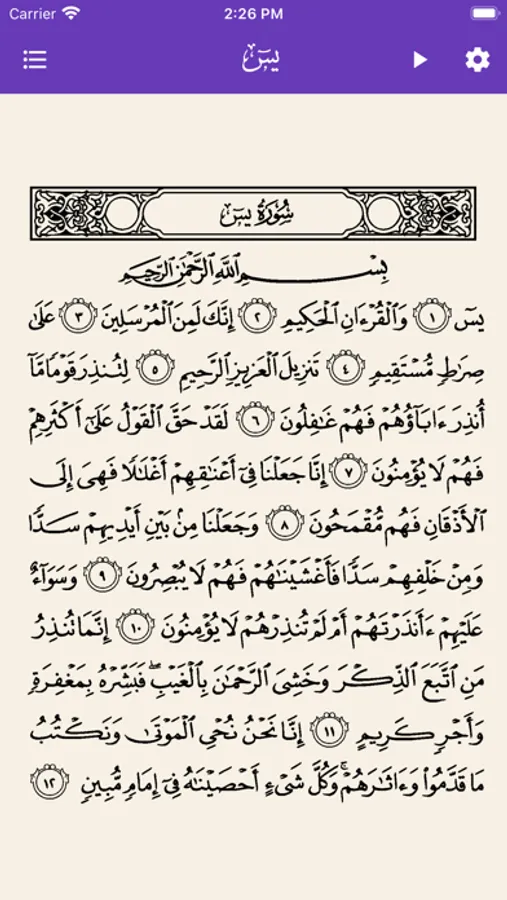 Carrier 2:26 PM
يسٓ
سُورَةُ يسٓ
بِسْمِ ٱللَّهِ ٱلرَّحْمَٰنِ ٱلرَّحِيمِ
يسٓ ١ وَٱلْقُرْءَانِ ٱلْحَكِيمِ ٢ إِنَّكَ لَمِنَ ٱلْمُرْسَلِينَ ٣ عَلَىٰ
صِرَٰطٍ مُّسْتَقِيمٍ ٤ تَنزِيلَ ٱلْعَزِيزِ ٱلرَّحِيمِ ٥ لِتُنذِرَ قَوْمًا مَّآ
أُنذِرَ ءَابَآؤُهُمْ فَهُمْ غَٰفِلُونَ ٦ لَقَدْ حَقَّ ٱلْقَوْلُ عَلَىٰٓ أَكْثَرِهِمْ
فَهُمْ لَا يُؤْمِنُونَ ٧ إِنَّا جَعَلْنَا فِىٓ أَعْنَٰقِهِمْ أَغْلَٰلًا فَهِىَ إِلَى
ٱلْأَذْقَانِ فَهُم مُّقْمَحُونَ ٨ وَجَعَلْنَا مِنۢ بَيْنِ أَيْدِيهِمْ سَدًّا
وَمِنْ خَلْفِهِمْ سَدًّا فَأَغْشَيْنَٰهُمْ فَهُمْ لَا يُبْصِرُونَ ٩ وَسَوَآءٌ
عَلَيْهِمْ ءَأَنذَرْتَهُمْ أَمْ لَمْ تُنذِرْهُمْ لَا يُؤْمِنُونَ ١٠ إِنَّمَا تُنذِرُ
مَنِ ٱتَّبَعَ ٱلذِّكْرَ وَخَشِىَ ٱلرَّحْمَٰنَ بِٱلْغَيْبِ ۖ فَبَشِّرْهُ بِمَغْفِرَةٍ
وَأَجْرٍ كَرِيمٍ ١١ إِنَّا نَحْنُ نُحْىِ ٱلْمَوْتَىٰ وَنَكْتُبُ
مَا قَدَّمُوا۟ وَءَاثَٰرَهُمْ ۚ وَكُلَّ شَىْءٍ أَحْصَيْنَٰهُ فِىٓ إِمَامٍ مُّبِينٍ ١٢